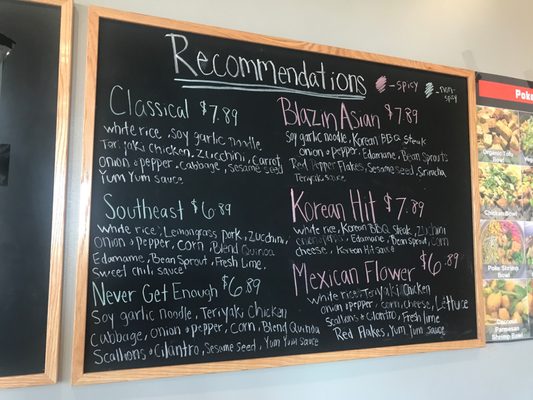 Recommendations
-spicy
-non-spicy
Classical $7.89
white rice, soy garlic noodle
Teriyaki chicken, Zucchini
onion & pepper, Cabbage, Carrot,
Sesame seed
Yum Yum sauce
Southeast $6.89
white rice, Lemongrass Pork, Zucchini,
onion & pepper, corn, Blend Quinoa
Edamame, Bean Sprout, Fresh Lime,
Sweet chili sauce
Never Get Enough $6.89
Soy garlic noodle, Teriyaki Chicken
Cabbage, onion & pepper, Corn, Blend Quinoa
Scallions & Cilantro, Sesame seed, Yum Yum sauce
Blazin Asian $7.89
Soy garlic noodle, Korean BBQ Steak
onion & pepper, Edamame, Bean Sprouts
Red Pepper Flakes, Sesame Seed, Sriracha
Teriyaki sauce
Korean Hit $7.89
white rice, Korean BBQ Steak, Zucchini
onion & pepper, Edamame, Bean Sprout, corn
cheese, Korean Hit sauce
Mexican Flower $6.89
white rice, Teriyaki Chicken
onion & pepper, corn, cheese, Lettuce
Scallions & Cilantro, Fresh lime
Red Flakes, Yum Yum sauce
Poke
Chicken Bowl
Poke Shrimp
Bowl